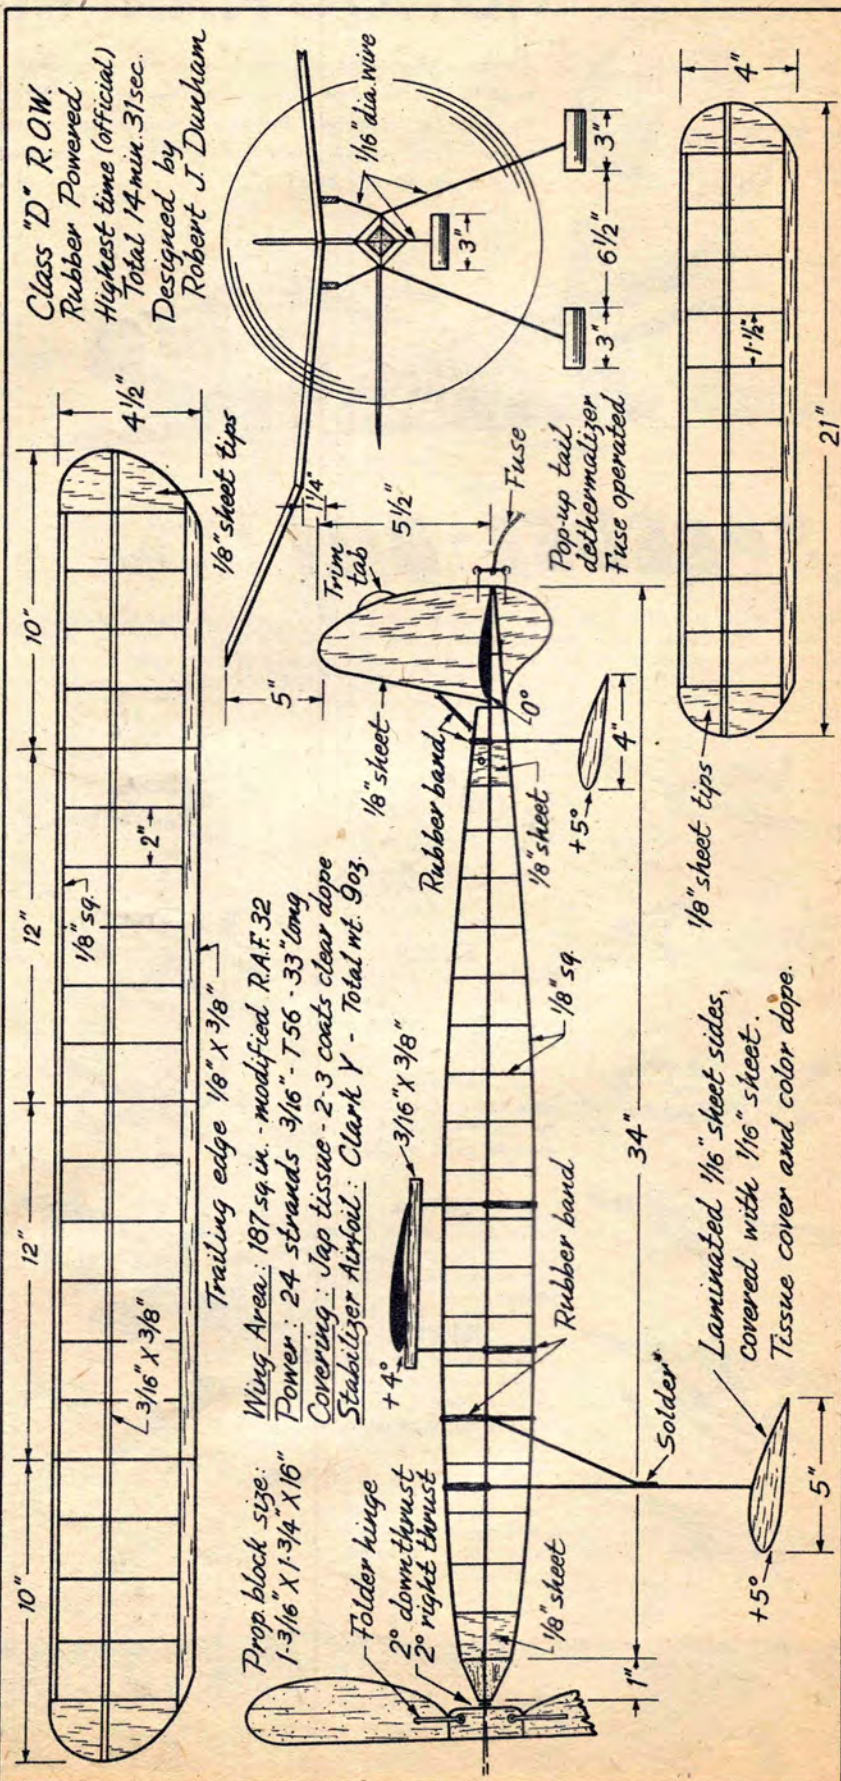 Class "D" R.O.W.
Rubber Powered
Highest time (official)
Total 14 min. 31 sec.
Designed by
Robert J. Dunham
10"
12"
12"
10"
4 1/2"
1/8" sq.
2"
3/16" X 3/8"
Trailing edge 1/8" X 3/8"
1/8" sheet tips
Prop. block size:
1-3/16" X 1-3/4" X 16"
Wing Area: 187 sq. in. - modified R.A.F. 32
Power: 24 strands 3/16" - T56 - 33" long
Covering: Jap tissue - 2-3 coats clear dope
Stabilizer Airfoil: Clark Y - Total wt. 9 oz.
Folder hinge
2° downthrust
2° right thrust
+4°
3/16" X 3/8"
1/8" sheet
Rubber band
1/8" sq.
1/8" sheet
Rubber band
1/8" sheet
0°
Trim
tab
5"
1 1/4"
5 1/2"
Fuse
Pop-up tail
dethermalizer
Fuse operated
1/16" dia. wire
3"
3"
6 1/2"
3"
1"
34"
Solder
+5°
5"
+5°
4"
Laminated 1/16" sheet sides,
covered with 1/16" sheet.
Tissue cover and color dope.
1/8" sheet tips
1-1/2"
21"
4"